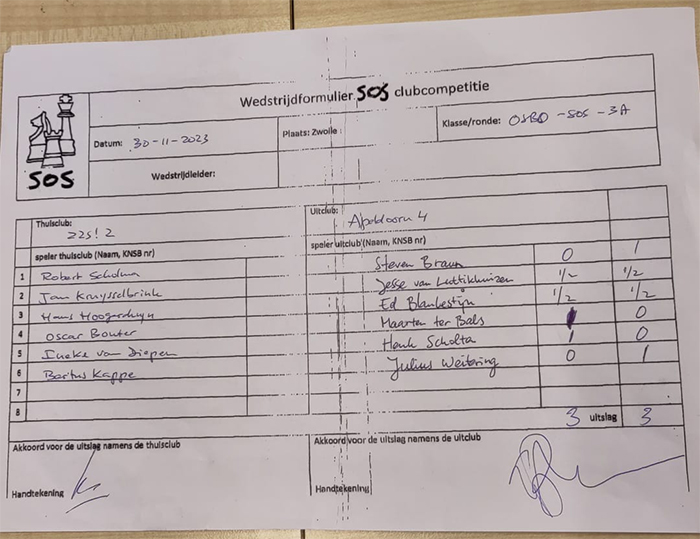 Wedstrijdformulier SOS clubcompetitie
SOS
Datum: 30-11-2023
Plaats: Zwolle :
Klasse/ronde: OSBO - SOS - 3A
Wedstrijdleider:
Thuisclub: ZZS! 2
Uitclub: Apeldoorn 4
speler thuisclub (Naam, KNSB nr)
speler uitclub (Naam, KNSB nr)
1 Robert Scholma Steven Braun 0 1
2 Jan Kruysselbrink Jesse van Luttikhuizen 1/2 1/2
3 Hans Hoogerduyn Ed Blankestijn 1/2 1/2
4 Oscar Bouter Maarten ter Bals 1 0
5 Ineke van Diepen Henk Scholta 1 0
6 Bartus Kappe Julius Weitering 0 1
7
8
3 uitslag 3
Akkoord voor de uitslag namens de thuisclub
Akkoord voor de uitslag namens de uitclub
Handtekening
Handtekening